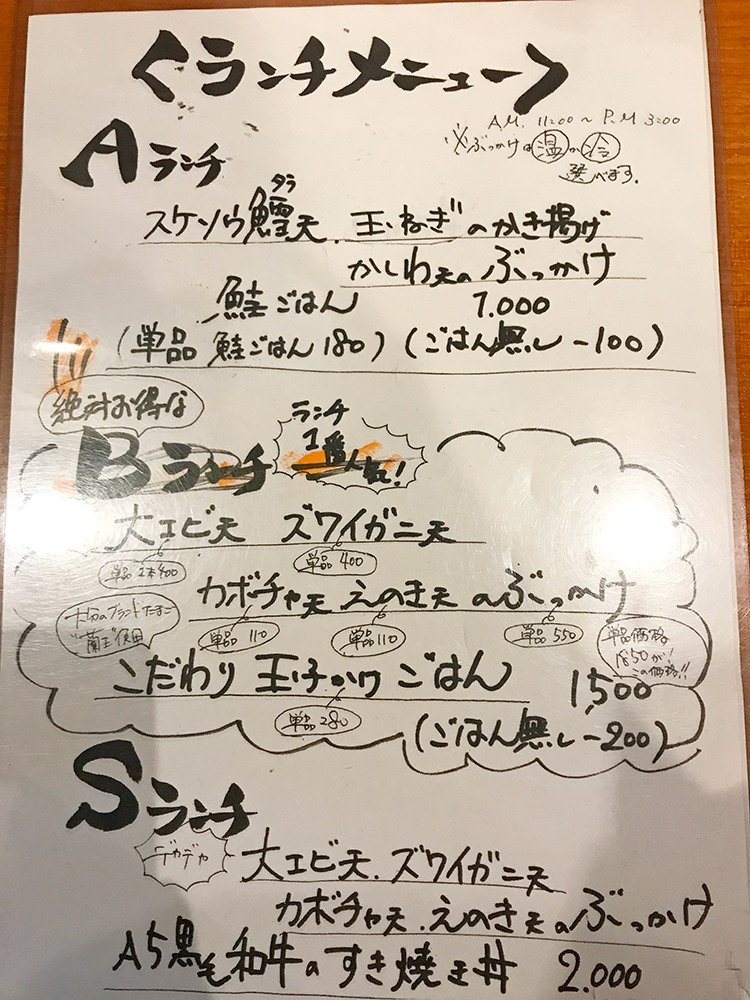 〈ランチメニュー〉
A.M. 11:00 ~ P.M 3:00
※ぶっかけは温か冷
選べます。
Aランチ
タラ
スケソウ鱈天、玉ねぎのかき揚げ
かしわ天のぶっかけ
鮭ごはん 1.000
(単品 鮭ごはん180) (ごはん無し-100)
絶対お得な
Bランチ
ランチ
1番人気!
大エビ天 ズワイガニ天
単品 400
カボチャ天 えのき天のぶっかけ
大分のブランドたまご
"蘭王"使用
単品110
単品110
単品550
単品価格
1850が!
この価格!!
こだわり玉子かけごはん 1,500
単品280
(ごはん無し-200)
Sランチ
デカデカ
大エビ天、ズワイガニ天
カボチャ天、えのき天のぶっかけ
A5黒毛和牛のすき焼き丼 2.000